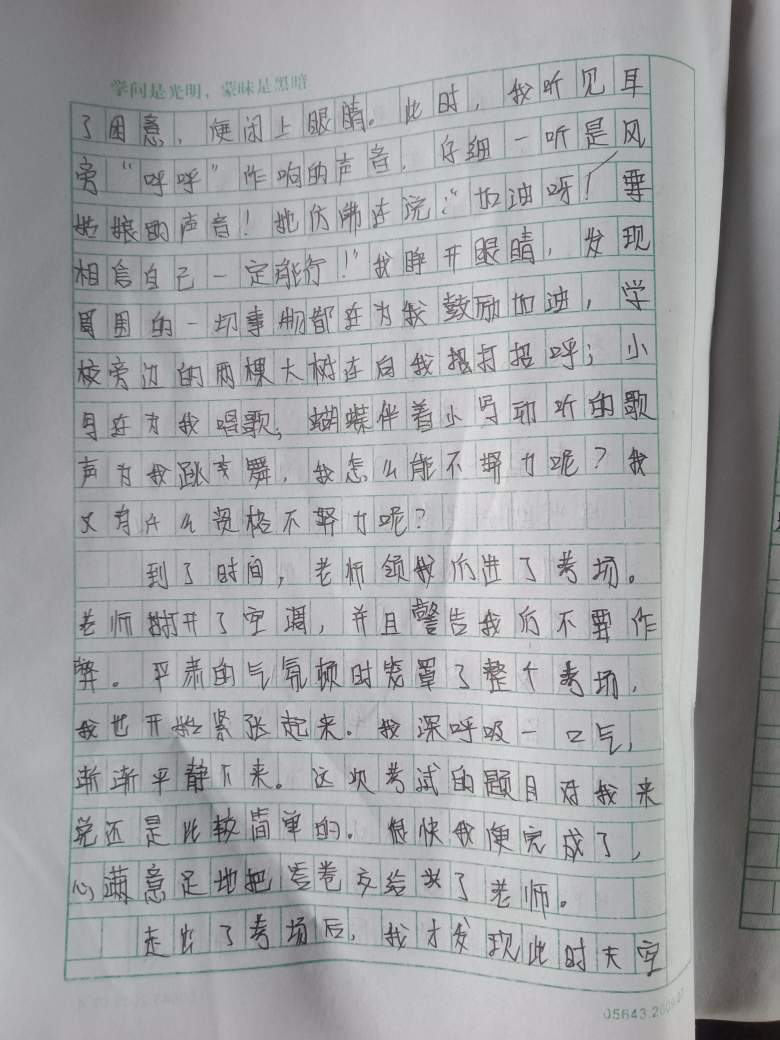 学问是光明，蒙昧是黑暗
了困意，便闭上眼睛。此时，我听见耳
旁“呼呼”作响的声音，仔细一听是风
姑娘的声音！她仿佛在说：“加油呀！要
相信自己一定能行！”我睁开眼睛，发现
周围的一切事物都在为我鼓励加油，学
校旁边的两棵大树在向我招打招呼；小
鸟在为我唱歌；蝴蝶伴着小鸟动听的歌
声为我跳支舞，我怎么能不努力呢？我
又有什么资格不努力呢？
到了时间，老师领我们进了考场。
老师打开了空调，并且警告我们不要作
弊。严肃的气氛顿时笼罩了整个考场，
我也开始紧张起来。我深呼吸一口气，
渐渐平静下来。这次考试的题目对我来
说还是比较简单的。很快我便完成了，
心满意足地把答卷交给了老师。
走出了考场后，我才发现此时天空